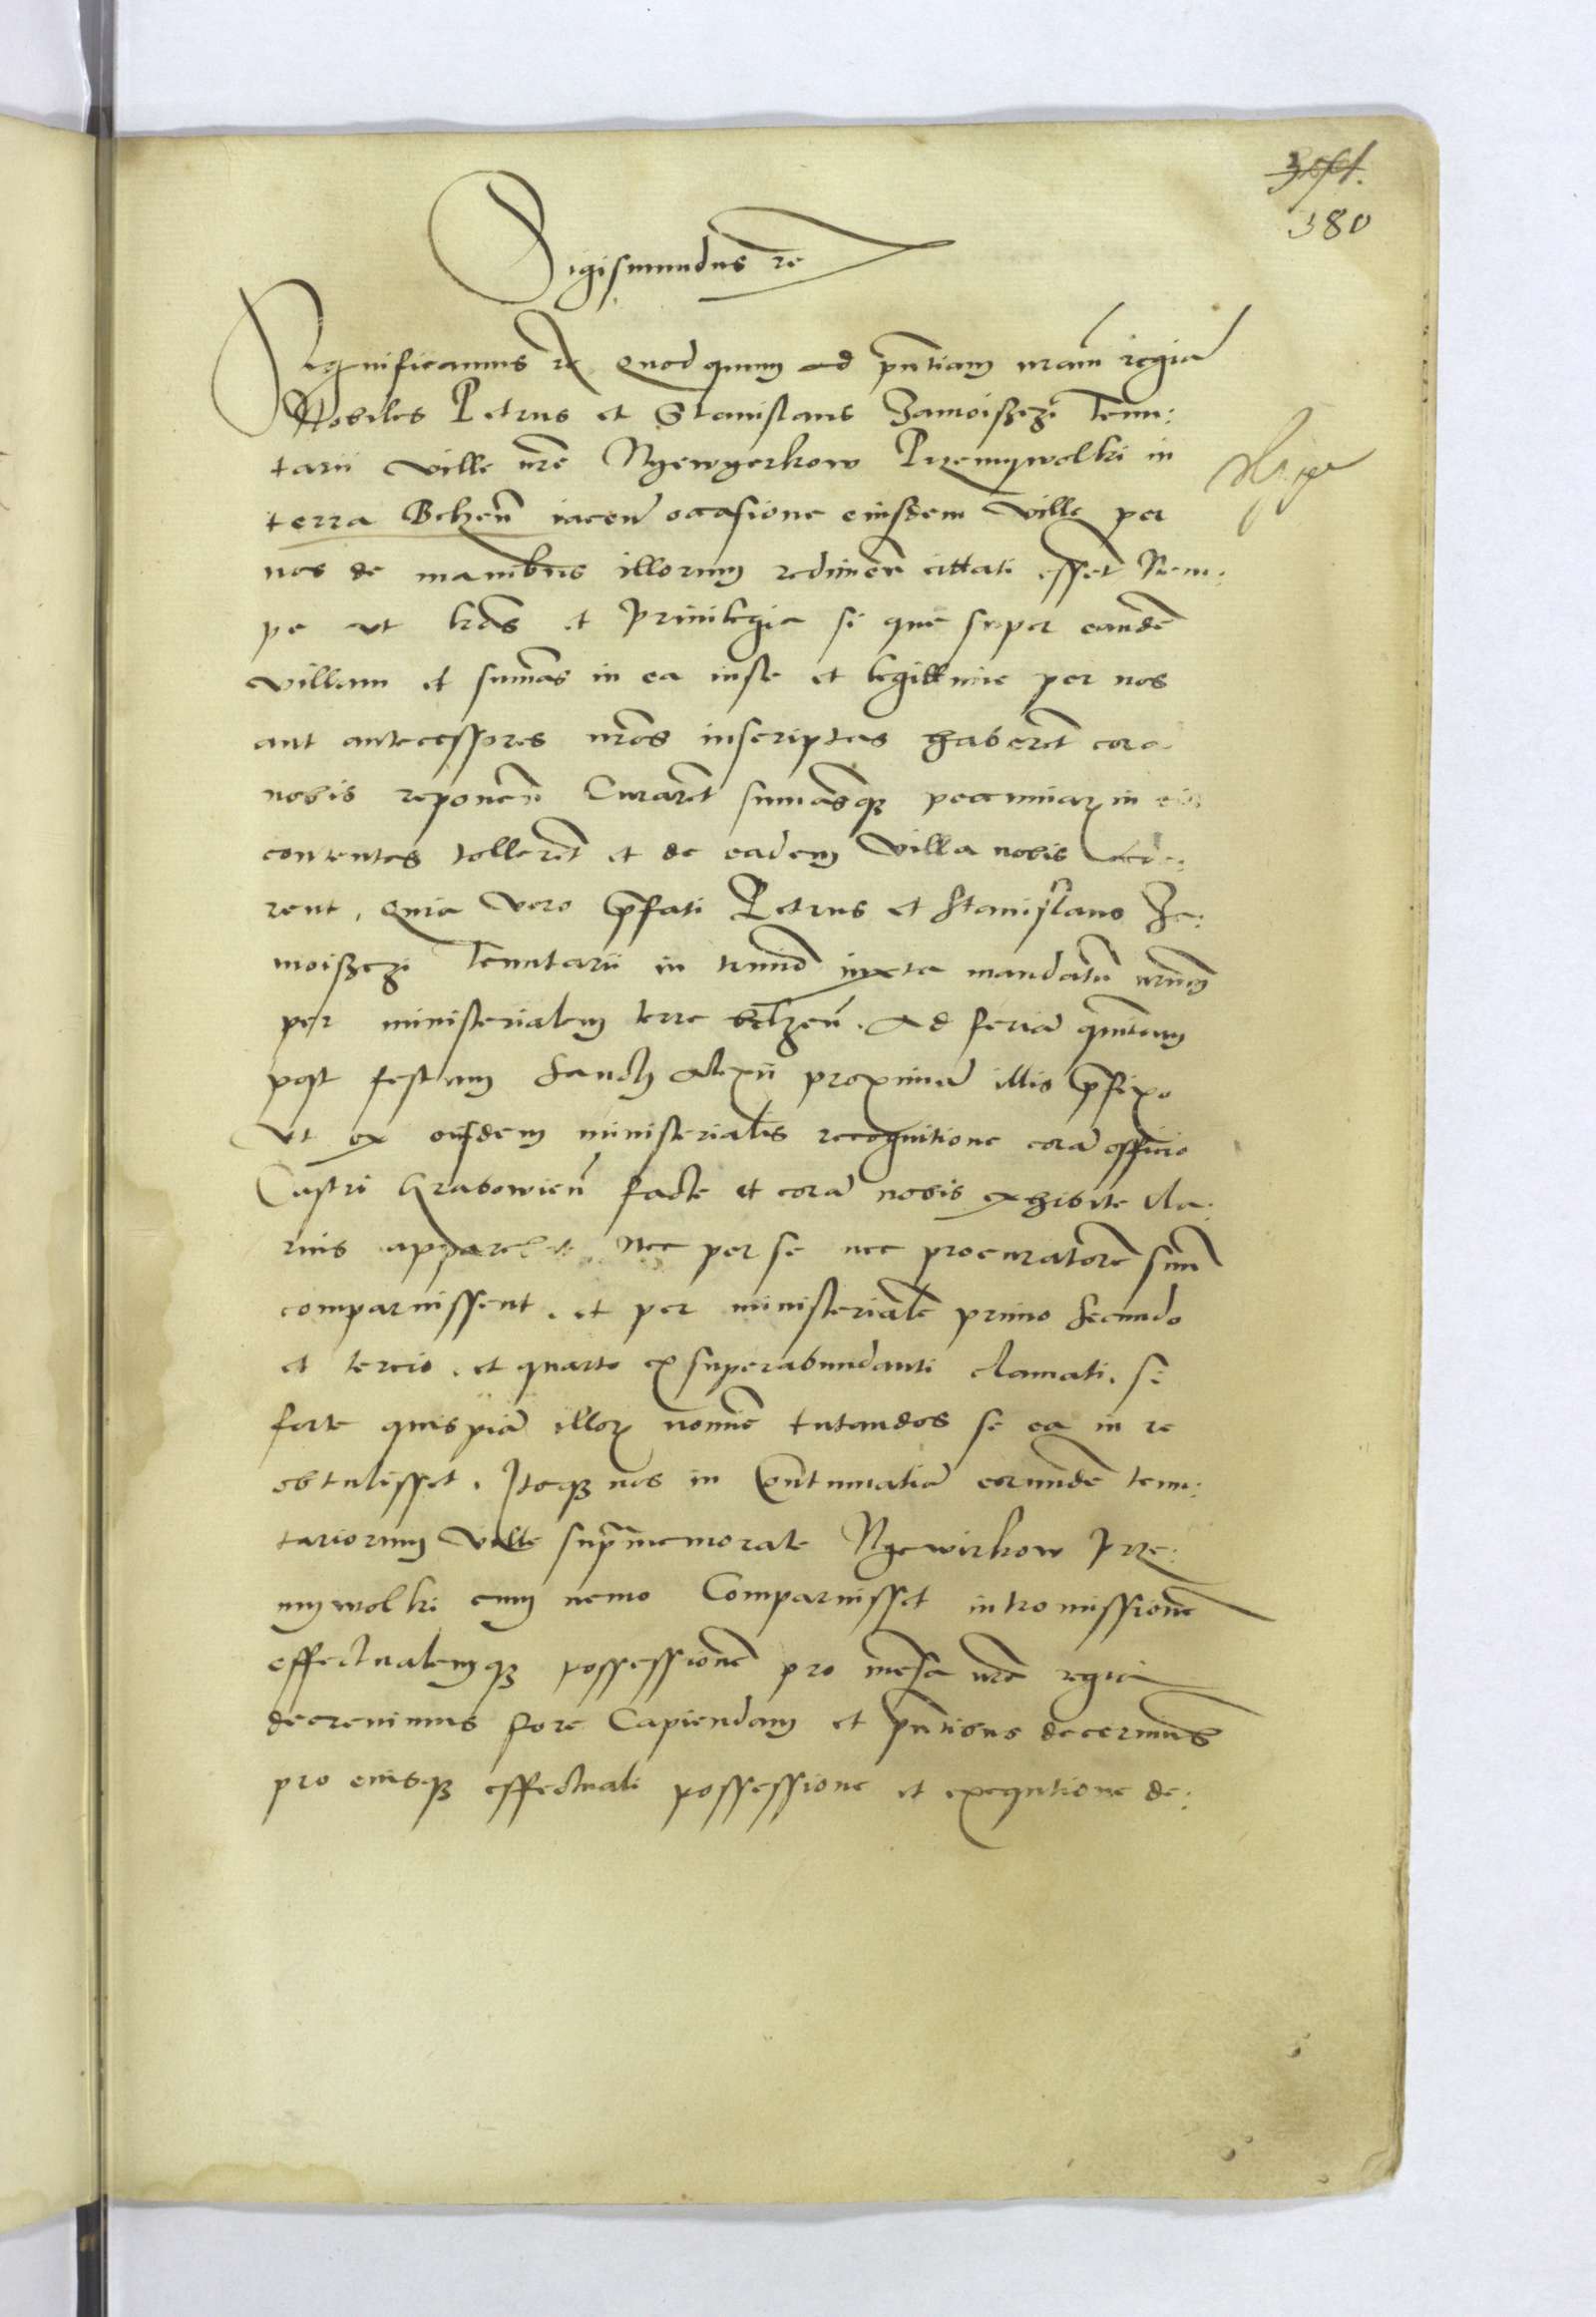 380
Sigismundus rc
Significamus rc Quod quum ad pntiam nram regiã
Nobiles Petrus et Stanislaus Zamoisczi Tenu:
tarii ville nre Nyewyerkow Przemywolki in
terra Belzeñ iaceñ occasione eiusdem ville per
nos de manibus illorum redimeñ cittati essent Nem:
pe ut lras et Privilegia si que super eandẽ
villam et summas in ea iuste et legittime per nos
aut antecessores nros inscriptas haberet cora
nobis reponeñ Curaret summasque pecuniar in eis
contentas tolleret et de eadem villa nobis cede:
rent, Quia vero prefati Petrus et Stanislaus Za:
moisczi Tenutarii in termino iuxta mandatũ nrum
per ministerialem terre belzeñ. Ad feriã quintam
post festum Sancti Alexii proximã illis prefixo
Ut ex eiusdem ministerialis recognitione corã officio
Castri Grabowieñ facte et corã nobis exhibite cla:
rius apparebat Nec per se nec procuratorẽ suum
comparuissent. et per ministerialẽ primo secundo
et tercio. et quarto ex superabundanti clamati. si
forte quispiã illor nomine tutandos se ea in re
obtulisset. Itaque nos in Contumatiã eorundẽ tenu:
tariorum ville supramemorate Nyewirkow Prze:
mywolki cum nemo Comparuisset intromissionẽ
effectualemque possessionẽ pro mensa nra regia
decrevimus fore Capiendam et pntibus decernimus
pro eiusque effectuali possessione et exequtione de: